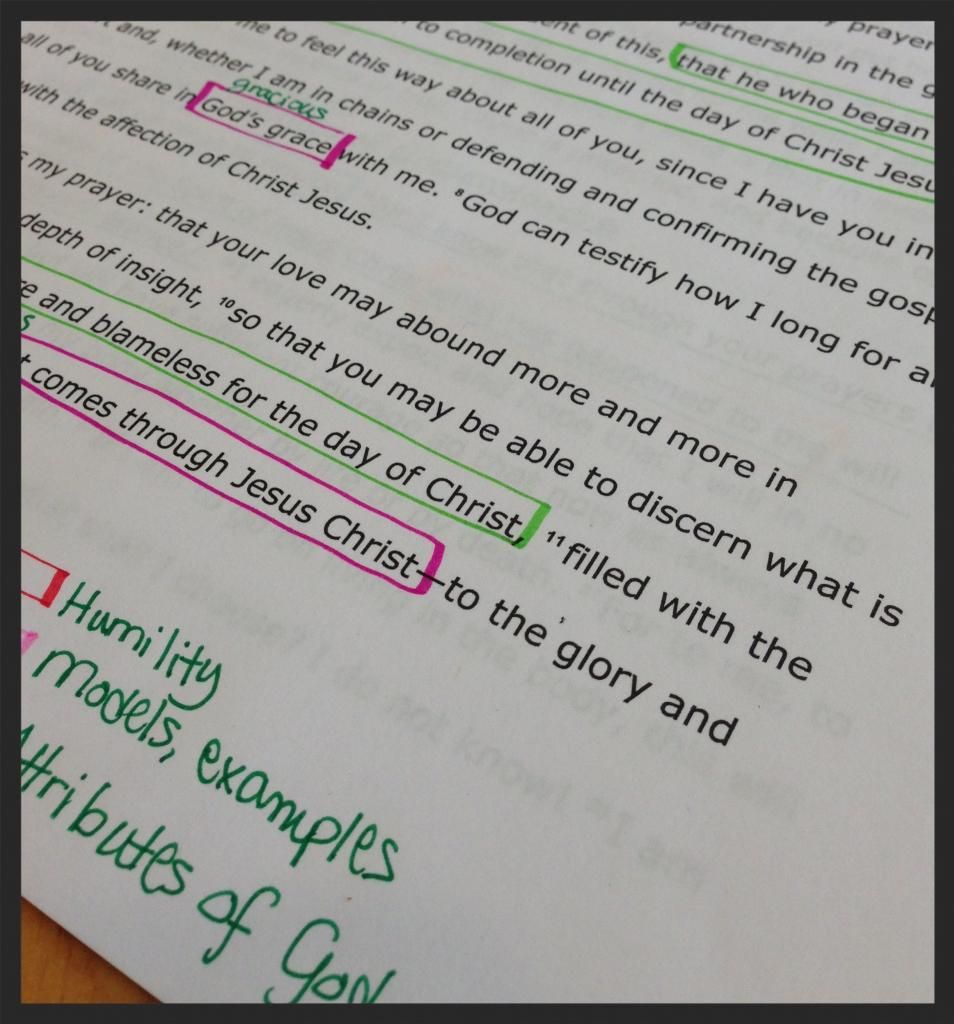 prayer
partnership in the g
ent of this, that he who began
to completion until the day of Christ Jesu
me to feel this way about all of you, since I have you in
t and, whether I am in chains or defending and confirming the gosp
gracious
all of you share in God's grace with me. ⁸God can testify how I long for a
with the affection of Christ Jesus.
s my prayer: that your love may abound more and more in
depth of insight, ¹⁰so that you may be able to discern what is
e and blameless for the day of Christ, ¹¹filled with the
s
t comes through Jesus Christ—to the glory and
Humility
Models, examples
Attributes of God